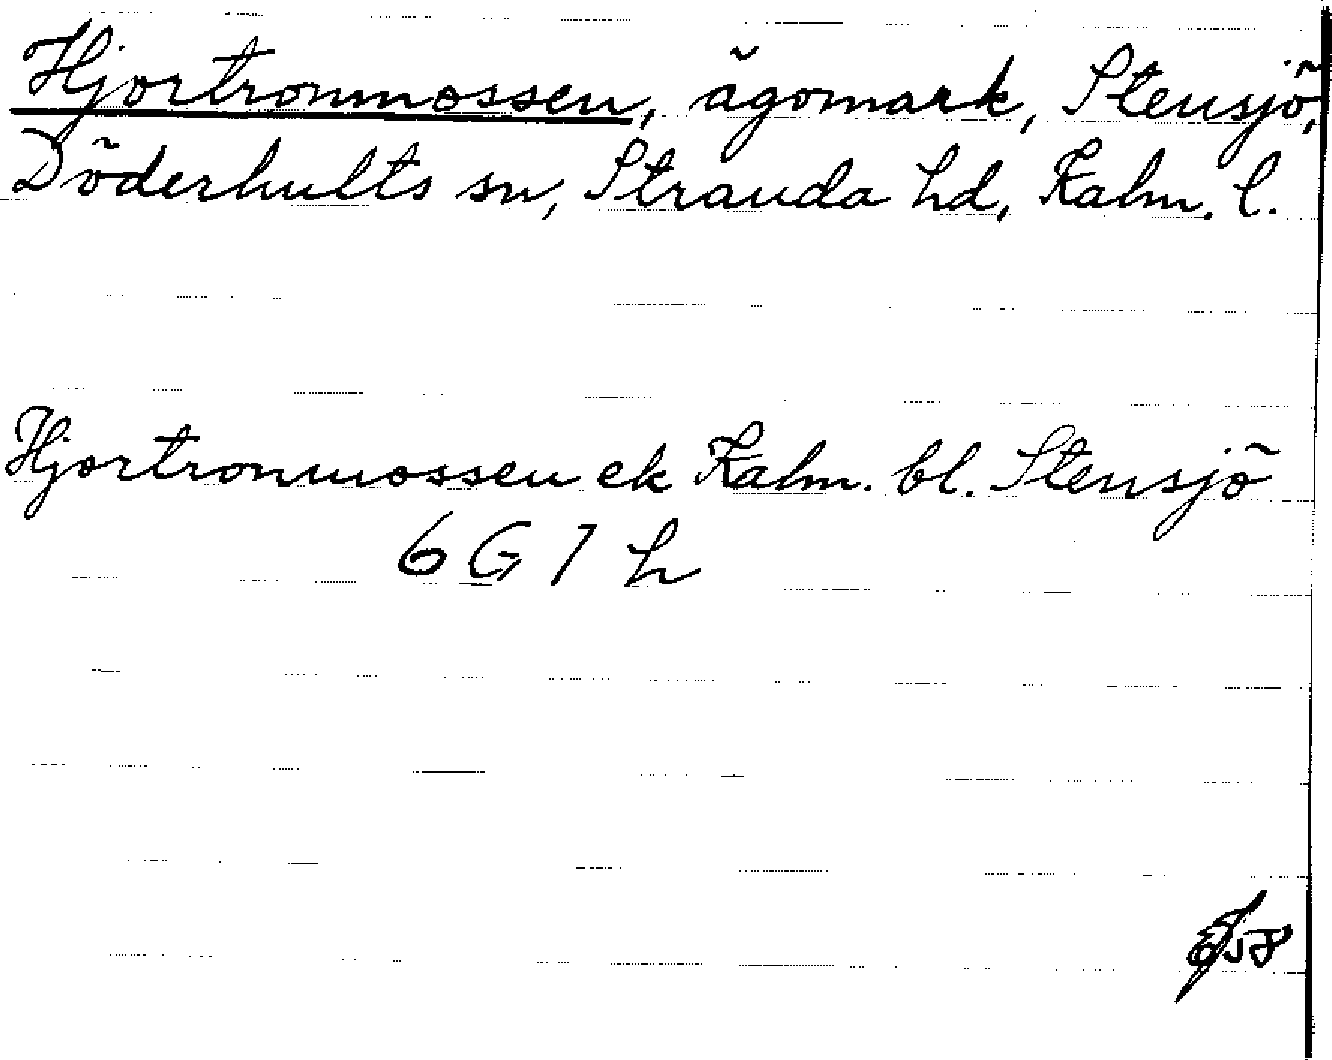 Hjortronmossen, ägomark, Stensjö,
Döderhults sn, Stranda hd, Kalm. l.
Hjortronmossen ek Kalm. bl. Stensjö
6 G 7 h